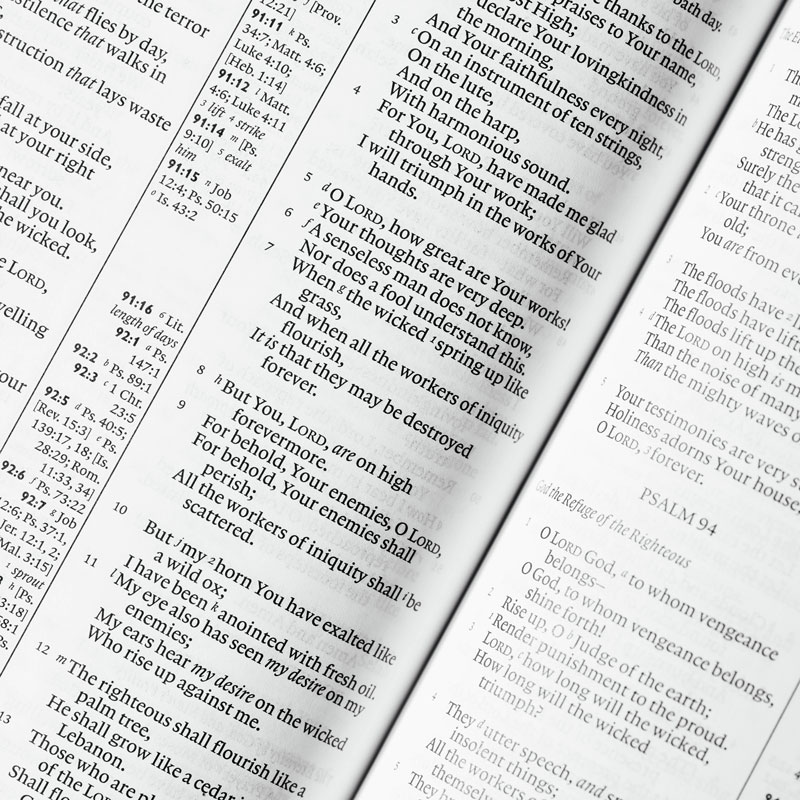 the terror
what flies by day,
stilence that walks in
struction that lays waste
fall at your side,
at your right
near you.
shall you look,
the wicked.
the LORD,
velling
your
12:21] / [Prov.
91:11 k Ps.
34:7; Matt. 4:6;
Luke 4:10;
[Heb. 1:14]
91:12 l Matt.
4:6; Luke 4:11
3 lift 4 strike
91:14 m [Ps.
9:10] 5 exalt
him
91:15 n Job
12:4; Ps. 50:15
o Is. 43:2
91:16 6 Lit.
length of days
92:1 a Ps.
147:1
92:2 b Ps. 89:1
92:3 c 1 Chr.
23:5
92:5 d Ps. 40:5;
[Rev. 15:3] e Ps.
139:17, 18; [Is.
28:29; Rom.
11:33, 34]
92:6 f Ps. 73:22
92:7 g Job
12:6; Ps. 37:1,
Jer. 12:1, 2;
Mal. 3:15]
1 sprout
h [Ps.
3:18]
Sabbath day.
thanks to the LORD,
praises to Your name,
st High;
declare Your lovingkindness in
the morning,
And Your faithfulness every night,
3 c On an instrument of ten strings,
On the lute,
And on the harp,
With harmonious sound.
4 For You, LORD, have made me glad
through Your work;
I will triumph in the works of Your
hands.
5 d O LORD, how great are Your works!
e Your thoughts are very deep.
6 f A senseless man does not know,
Nor does a fool understand this.
7 When g the wicked 1 spring up like
grass,
And when all the workers of iniquity
flourish,
It is that they may be destroyed
forever.
8 h But You, LORD, are on high
forevermore.
9 For behold, Your enemies, O LORD,
For behold, Your enemies shall
perish;
All the workers of iniquity shall i be
scattered.
10 But j my 2 horn You have exalted like
a wild ox;
I have been k anointed with fresh oil.
11 l My eye also has seen my desire on my
enemies;
My ears hear my desire on the wicked
Who rise up against me.
12 m The righteous shall flourish like a
palm tree,
He shall grow like a cedar in
Lebanon.
13 Those who are pl
of the LOR
Shall flo
The L
b He has g
streng
Surely the
that it ca
2 c Your throne
old;
You are from ev
3 The floods have 2 l
The floods have lift
The floods lift up the
4 d The LORD on high is m
Than the noise of many
Than the mighty waves o
5 Your testimonies are very s
Holiness adorns Your house,
O LORD, 3 forever.
PSALM 94
God the Refuge of the Righteous
1 O LORD God, a to whom vengeance
belongs—
O God, to whom vengeance belongs,
shine forth!
2 Rise up, O b Judge of the earth;
Render punishment to the proud.
3 LORD, c how long will the wicked,
How long will the wicked
triumph?
4 They d utter speech, and sp
insolent things;
All the workers o
themselv
5 They b